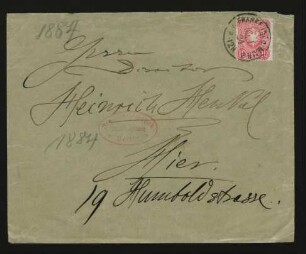 1884
Herrn
Director
Heinrich Henkel
1884
Hier.
19 Humboldstrasse.